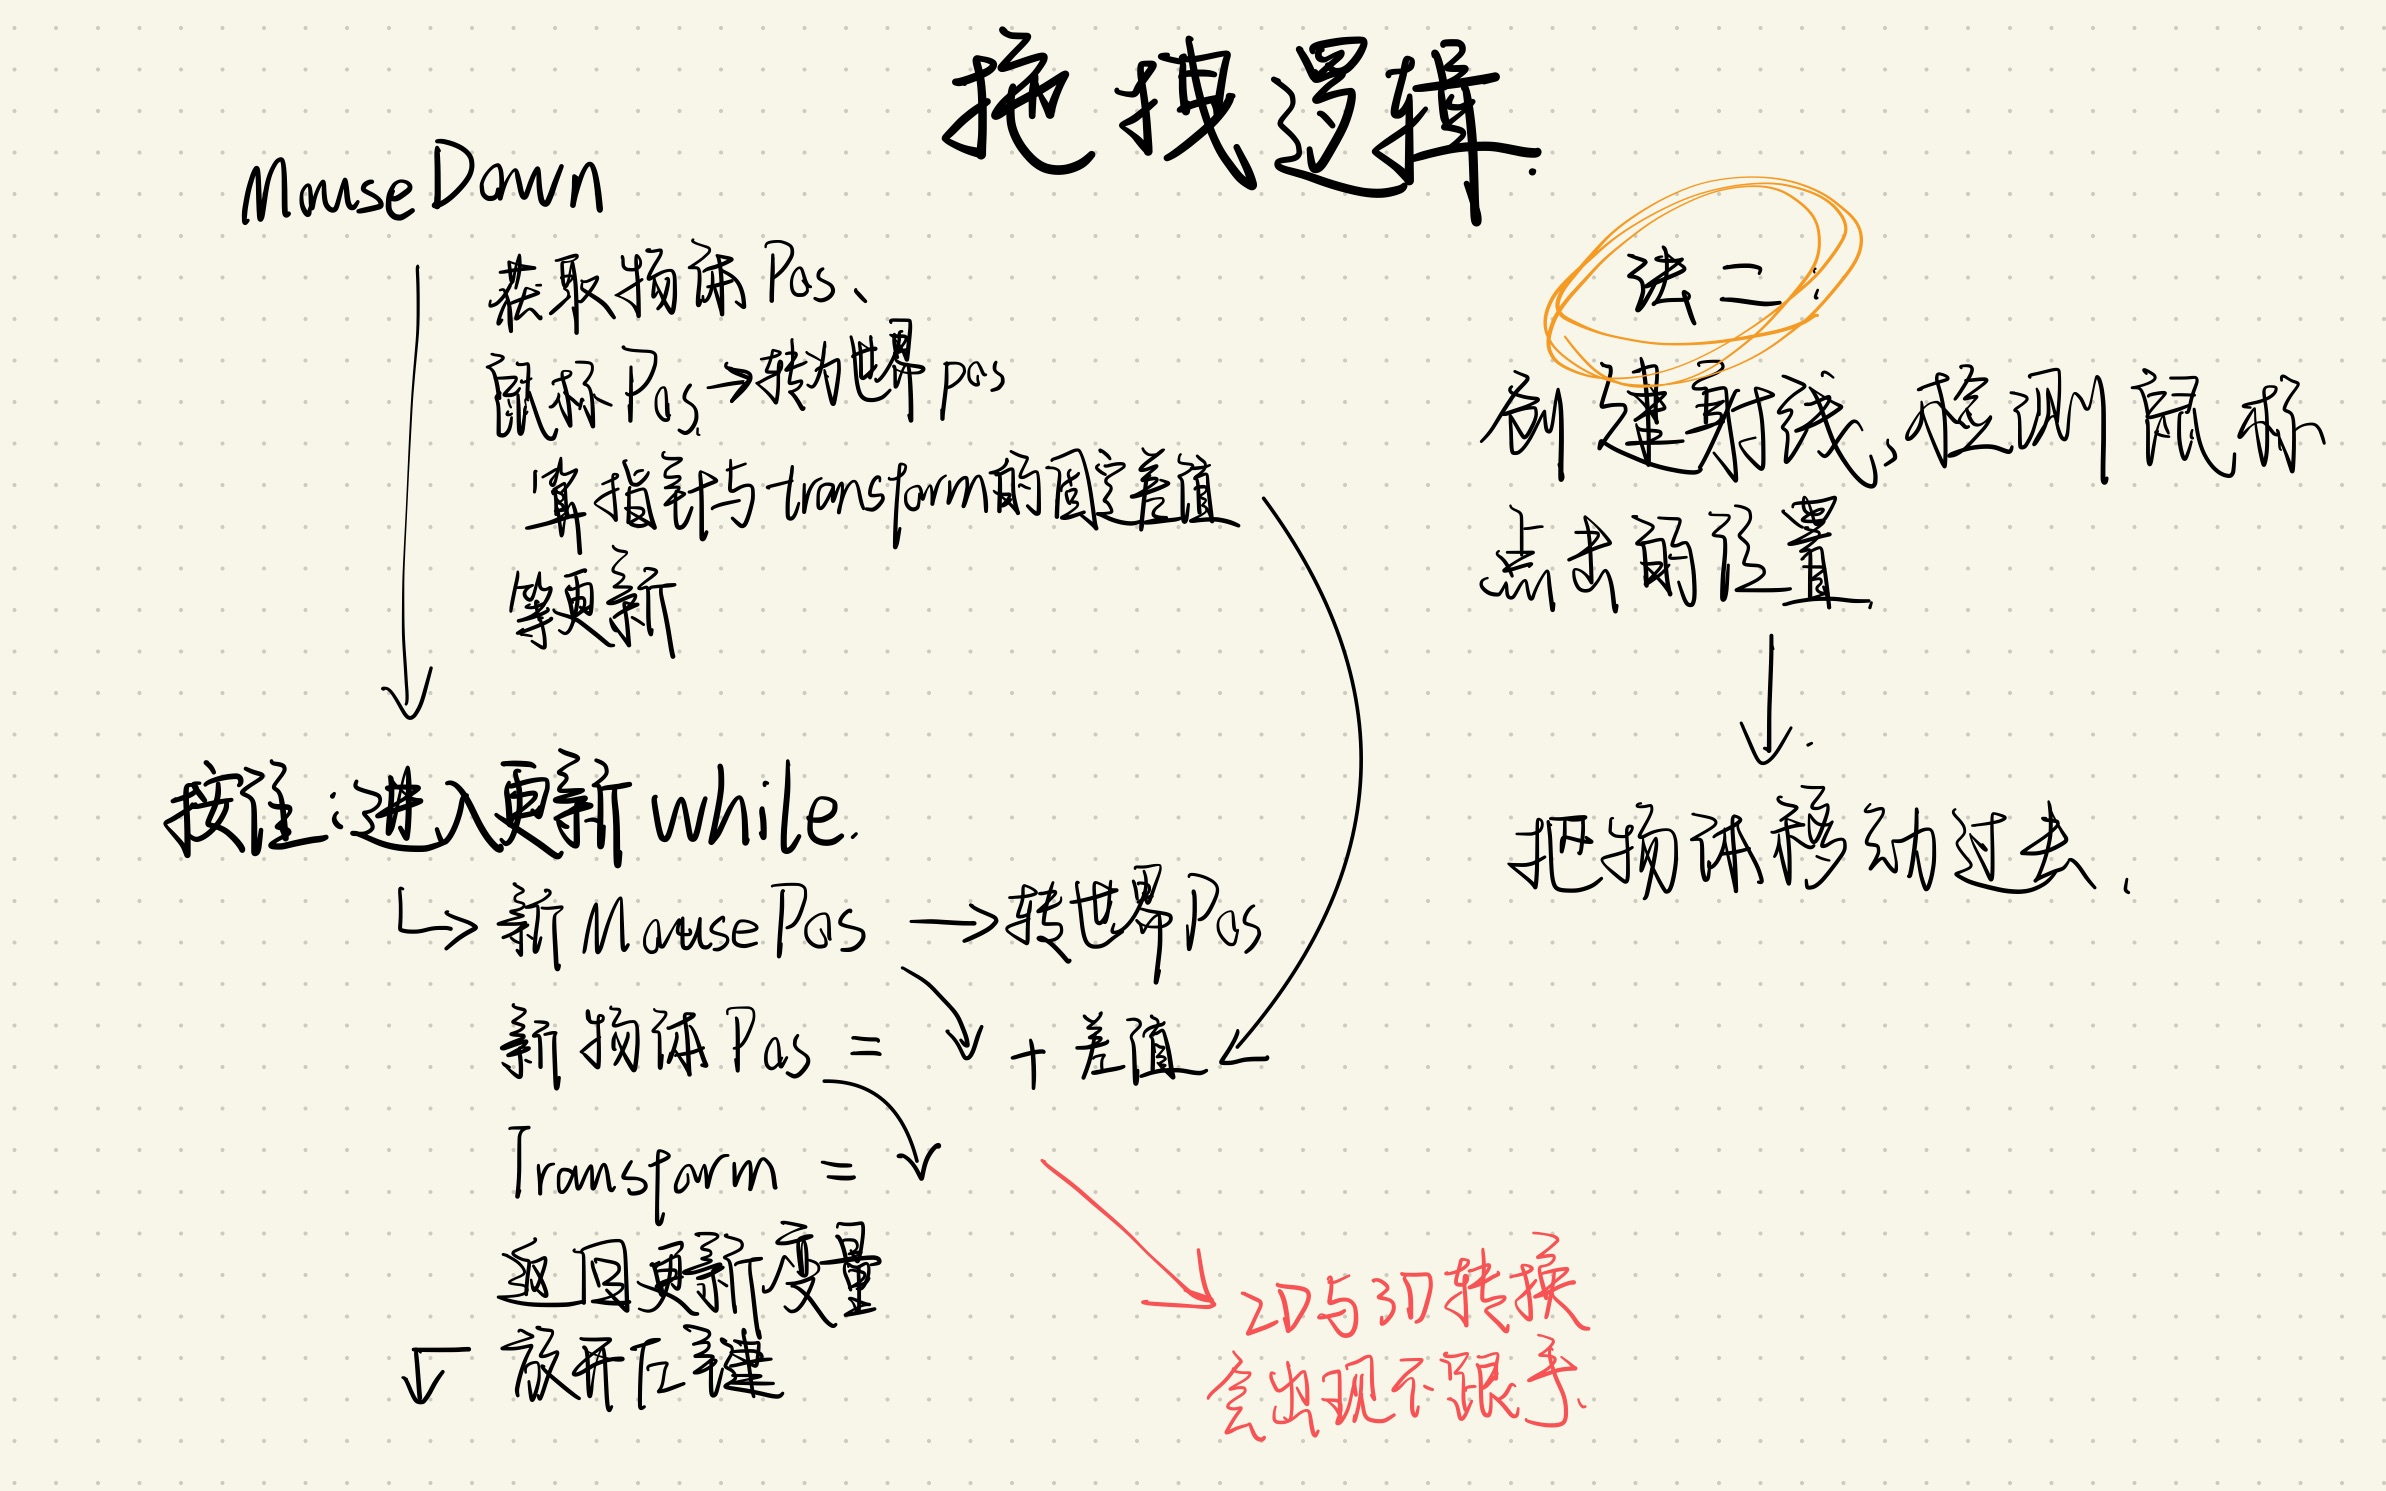 拖拽逻辑.
MouseDown
获取物体Pos、
鼠标Pos→转为世界pos
算指针与transform的固定差值
等更新
按住:进入更新while.
新MousePos →转世界Pos
新物体Pos = + 差值
Transform =
返回更新变量
放开左键
2D与3D转换
会出现不跟手.
法二:
创建射线,检测鼠标
点击的位置
把物体移动过去.